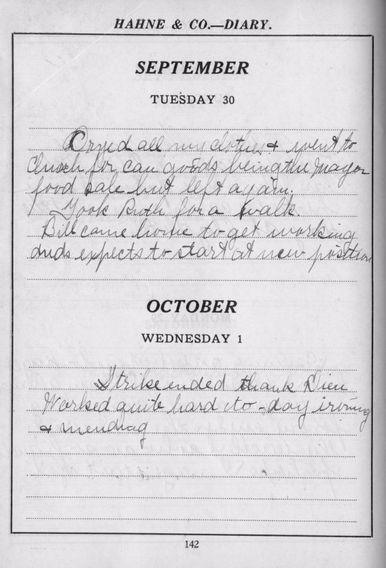 HAHNE & CO.—DIARY.
SEPTEMBER
TUESDAY 30
all my clothes & went to
Church for can goods being the Mayor
food sale but left again.
Took Ruth for a walk.
Bill came home to get working
duds expects to start at new position
OCTOBER
WEDNESDAY 1
Strike ended thank Dieu
Worked quite hard to-day irving
& mending
142